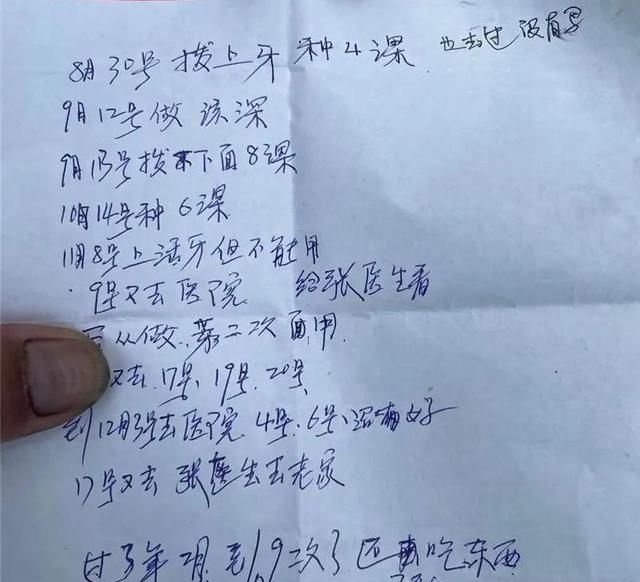 8月30号 拔上牙 种4课 也去过 没有号
9月12号做 该深
9月13号拔下面8课
10月14号种6课
11月8号上活牙但不能用
9号又去医院 给张医生看
从做 第二次 面用
又去 17号、19号、20号
到12月3号去医院 4号、6号、沼有好
17号又去 张医生去老家
过了年 2月 去19次了 还 吃东西